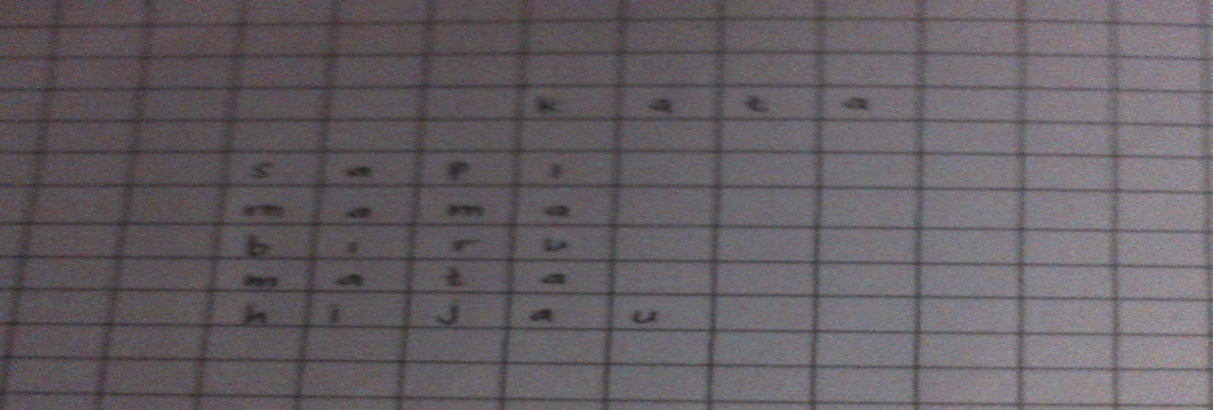 k a t a
s a p i
m a m a
b i r u
m a t a
h i j a u